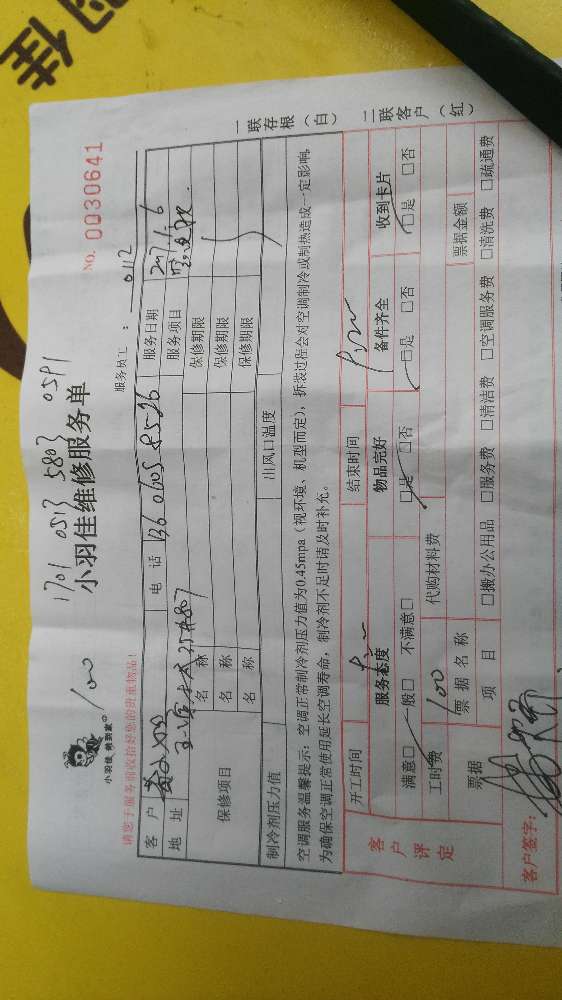 羽佳
1701 0513 5803 0591
小羽佳维修服务单
NO. 0030641
小羽佳 俩到家
100
服务员工： 0112
请您于服务前收拾好您的贵重物品！
客户 电话 136 0605 8526 服务日期 2017.1.6
地址 服务项目
保修项目 名称 保修期限
名称 保修期限
名称 保修期限
制冷剂压力值 出风口温度
空调服务温馨提示：空调正常制冷剂压力值为0.45mpa（视环境、机型而定），拆装过程会对空调制冷或制热造成一定影响，
为确保空调正常使用延长空调寿命，制冷剂不足时请及时补充。
一联存根（白） 二联客户（红）
客户评定
开工时间 结束时间
服务态度 物品完好 备件齐全 收到卡片
满意□ 一般□ 不满意□ □是 □否 □是 □否 □是 □否
工时费 100 代购材料费
票据 票据名称 票据金额
项目 □搬办公用品 □服务费 □清洁费 □空调服务费 □清洗费 □疏通费
客户签字：